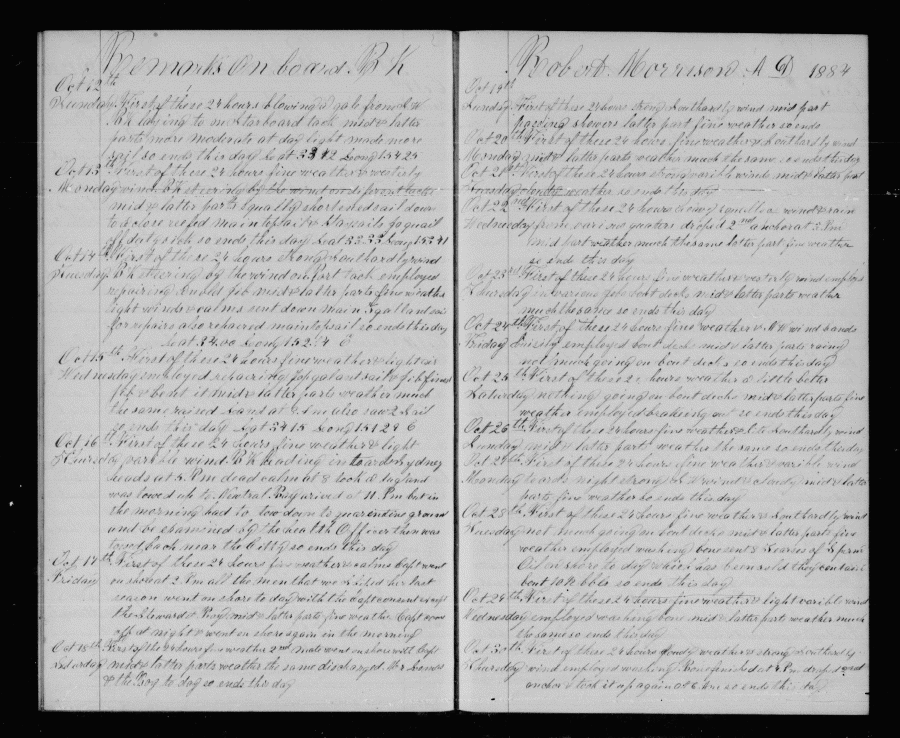 Remarks On board Bk
Oct 12th
Sunday First of these 24 hours blowing a gale from
Bk laying to on Starboard tack mid & latter
parts more moderate at day light made more
sail so ends this day Lat 33 12 Long 154 24
Oct 13th First of these 24 hours fine weather & westerly
Monday wind Bk steering by the wind on
mid & latter parts squally shortened sail down
to a close reefed main topsail &
so ends this day Lat 33 33 Long 153 41
Oct 14th First of these 24 hours strong Southardly wind
Tuesday Bk steering by the wind on Port tack employed
repairing mid & latter parts fine weather
light winds & calms sent down main gallant sail
for repairs also main topsail so ends this day
Lat 34.00 Long 152 E
Oct 15th First of these 24 hours fine weather & light air
Wednesday employed repairing gallant sail &
& bent it mid & latter parts weather much
the same raised land at also saw 2 Sail
so ends this day Lat 34 15 Long 151 29 E
Oct 16th First of these 24 hours fine weather & light
Thursday varible wind Bk heading in toards Sydney
heads at 5 P.m dead calm at 8 took a tug and
was towed up to Neutral Bay arived at 11 P.m but in
the morning had to tow down to quarindine ground
and be examined by the health Officer then was
towed back near the City so ends this day
Oct 17th First of these 24 hours fine weather & calms Capt went
Friday on shore at 2 P.m all the men that we shiped her last
season went on shore to day with the Capt consent except
the Steward & Boy mid & latter parts fine weather Capt
off at night & went on shore again in the morning
Oct 18th First of these 24 hours fine weather 2nd mate went on shore with Capt
Saturday mid & latter parts weather the same discharged Mr
& the Boy to day so ends this day
Robert Morrison A D 1884
Oct 19th
Sunday First of these 24 hours strong Southardly wind mid part
passing showers latter part fine weather so ends
Oct 20th First of these 24 hours fine weather & Southardly wind
Monday mid & latter parts weather much the same so ends this day
Oct 21st First of these 24 hours strong varible winds mid & latter part
Tuesday weather so ends this day
Oct 22nd First of these 24 hours heavy squalls of wind & rain
Wednesday from various quaters droped 2nd anchor at 3 P.m
mid part weather much the same latter part fine weather
so ends this day
Oct 23rd First of these 24 hours fine weather & westerly wind employed
Thursday in various jobs bout decks mid & latter parts weather
much the same so ends this day
Oct 24th First of these 24 hours fine weather & N E wind hands
Friday buisely employed bout decks mid & latter parts rainy
not much going on bout decks so ends this day
Oct 25th First of these 24 hours weather a little better
Saturday nothing going on bout decks mid & latter parts fine
weather employed so ends this day
Oct 26th First of these 24 hours fine weather & Southardly wind
Sunday mid & latter parts weather the same so ends this day
Oct 27th First of these 24 hours fine weather & varible wind
Monday toards night strong wind & cloudy mid & latter
parts fine weather so ends this day
Oct 28th First of these 24 hours fine weather & Southardly wind
Tuesday not much going on bout decks mid & latter parts fine
weather employed washing bone sent 8 of Sperm
Oil on shore to day which has been sold they contain
bout 10½ bbls so ends this day
Oct 29th First of these 24 hours fine weather & light varible wind
Wednesday employed washing bone mid & latter parts weather much
the same so ends this day
Oct 30th First of these 24 hours cloudy weather & strong Southerly
Thursday wind employed washing Bone finished at 4 P.m droped 2nd
anchor & took it up again at 6 A.m so ends this day